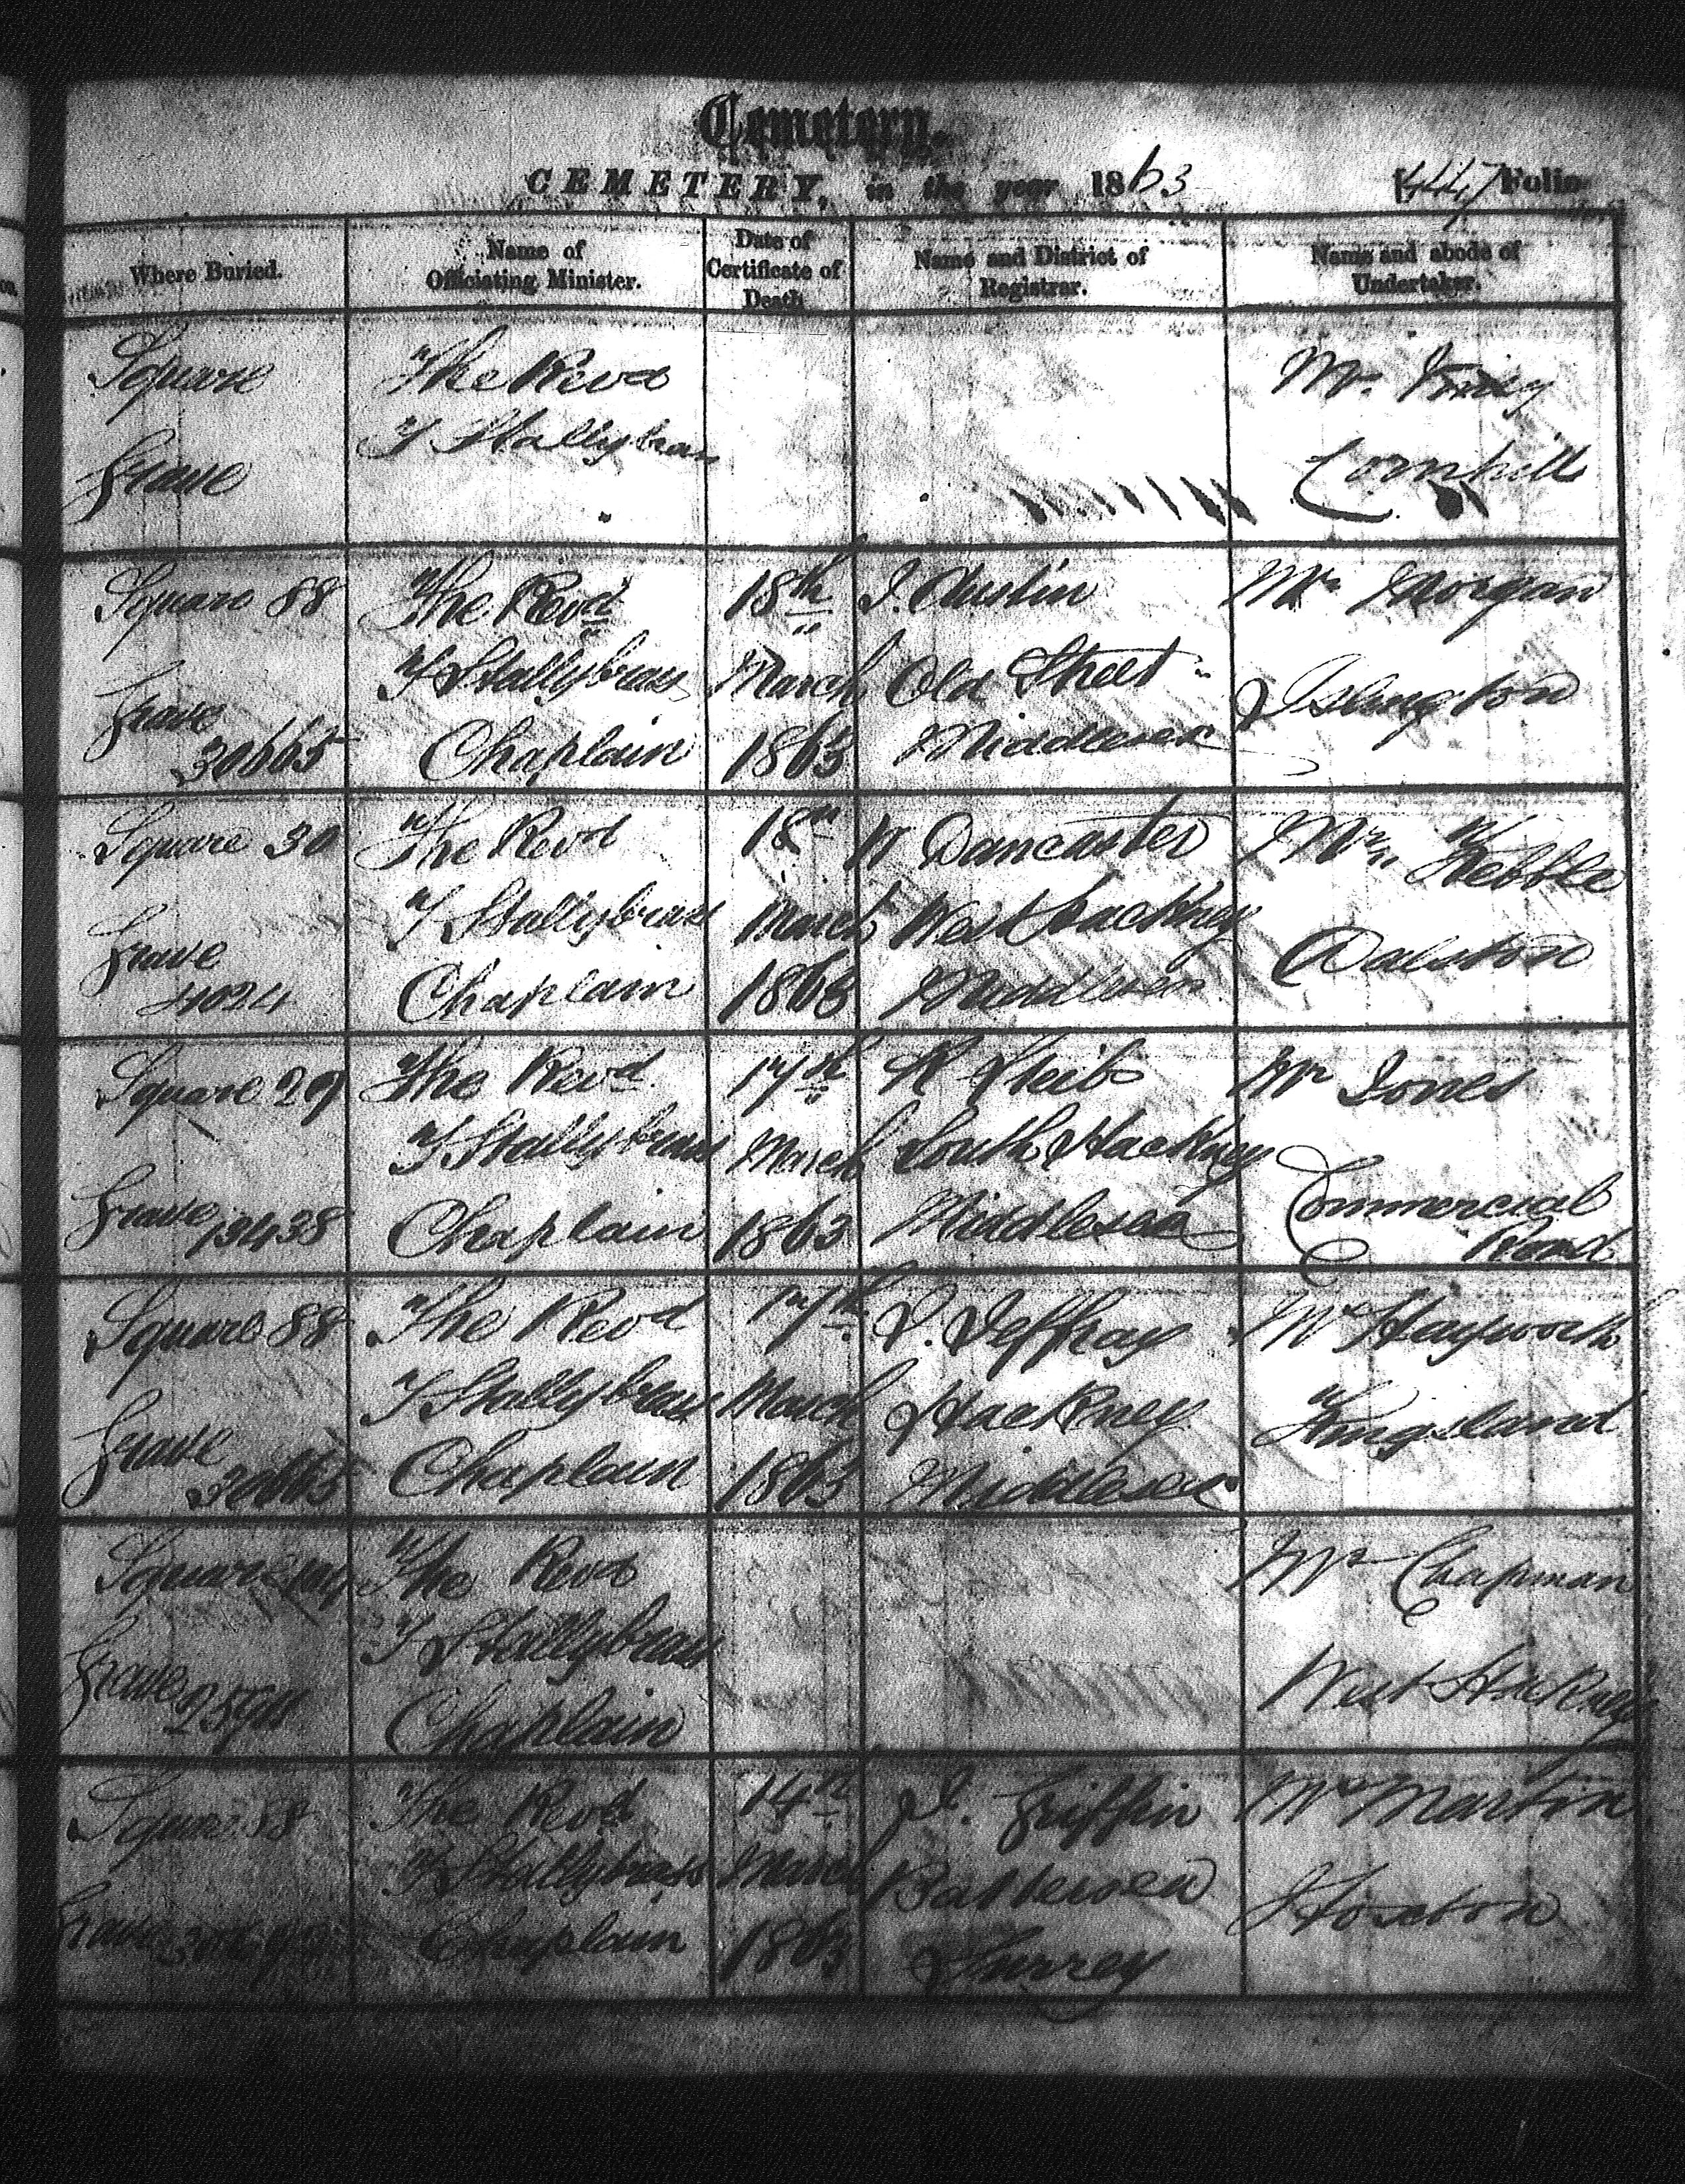 Cemetery.
CEMETERY, in the year 1863
Folio
Where Buried.
Name of
Officiating Minister.
Date of
Certificate of
Death
Name and District of
Registrar.
Name and abode of
Undertaker.
Square
Grave
The Revd
T Stallybrass
Mr
Cornhill
Square 88
Grave
30665
The Revd
T Stallybrass
Chaplain
18th
March
1863
J. Austin
Old Street
Middlesex
Mr Morgan
Islington
Square 30
Grave
4024
The Revd
T Stallybrass
Chaplain
18th
March
1863
W Dancaster
West Hackney
Middlesex
Mr Kebble
Dalston
Square 29
Grave 13438
The Revd
T Stallybrass
Chaplain
17th
March
1863
R
South Hackney
Middlesex
Mr Jones
Commercial
Road
Square 88
Grave
30665
The Revd
T Stallybrass
Chaplain
17th
March
1863
J. Jeffray
Hackney
Middlesex
Mr Hayworth
Kingsland
Square
Grave
The Revd
T Stallybrass
Chaplain
Mr Chapman
West Hackney
Square 88
Grave
The Revd
T Stallybrass
Chaplain
14th
March
1863
J. Griffin
Battersea
Surrey
Mr Martin
Hoxton